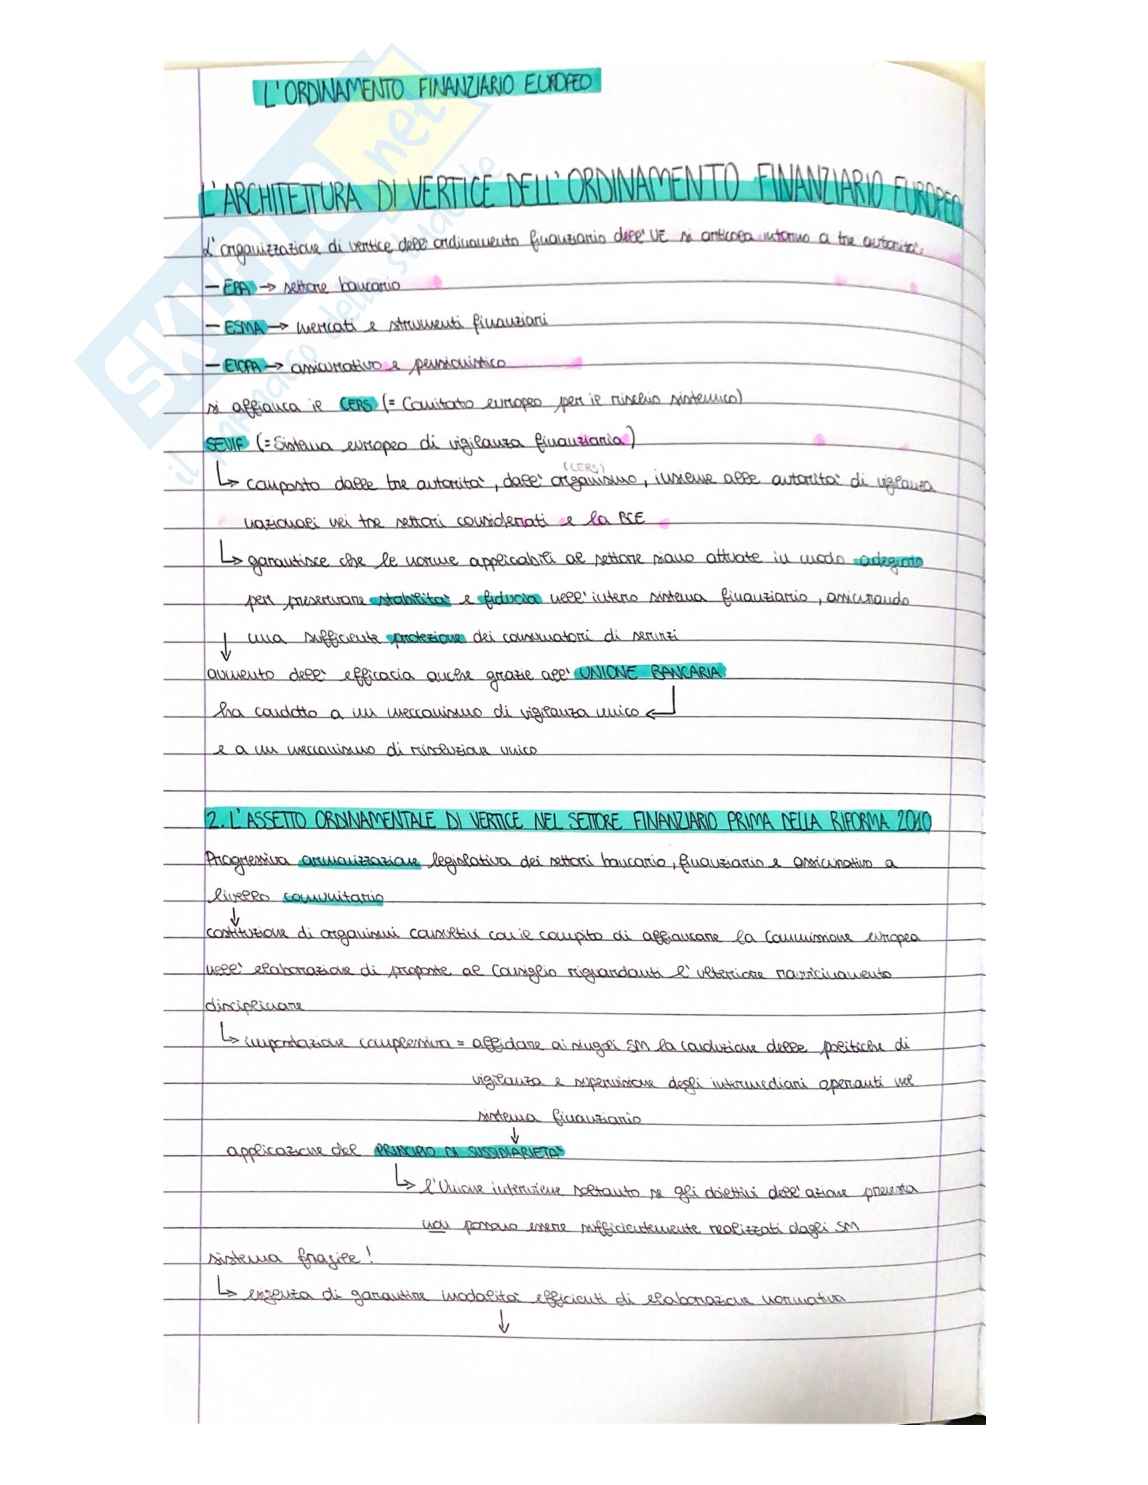 L'ORDINAMENTO FINANZIARIO EUROPEO
L'ARCHITETTURA DI VERTICE DELL'ORDINAMENTO FINANZIARIO EUROPEO
L'organizzazione di vertice dell'ordinamento finanziario dell'UE si articola intorno a tre autorità:
- EBA → settore bancario
- ESMA → mercati e strumenti finanziari
- EIOPA → assicurativo e pensionistico
si affianca il CERS (= Comitato europeo per il rischio sistemico)
SEVIF (= Sistema europeo di vigilanza finanziaria)
(CERS)
↳ composto dalle tre autorità, dall'organismo, insieme alle autorità di vigilanza
nazionali nei tre settori considerati e la BCE
↳ garantisce che le norme applicabili al settore siano attuate in modo adeguato
per preservare stabilità e fiducia nell'intero sistema finanziario, assicurando
↓ una sufficiente protezione dei consumatori di servizi
aumento dell'efficacia anche grazie all'UNIONE BANCARIA
ha condotto a un meccanismo di vigilanza unico ↵
e a un meccanismo di risoluzione unico
2. L'ASSETTO ORDINAMENTALE DI VERTICE NEL SETTORE FINANZIARIO PRIMA DELLA RIFORMA 2010
Progressiva armonizzazione legislativa dei settori bancario, finanziario e assicurativo a
livello comunitario
↓
costituzione di organismi consultivi con il compito di affiancare la Commissione europea
nell'elaborazione di proposte al Consiglio riguardanti l'ulteriore ravvicinamento
disciplinare
↳ impostazione complessiva = affidare ai singoli SM la conduzione delle politiche di
vigilanza e supervisione degli intermediari operanti nel
sistema finanziario
↓
applicazione del PRINCIPIO DI SUSSIDIARIETA'
↳ l'Unione interviene soltanto se gli obiettivi dell'azione prevista
non possono essere sufficientemente realizzati dagli SM
sistema fragile!
↳ esigenza di garantire modalità efficienti di elaborazione normativa
↓
SKUOLA.net
il paradiso dello studente